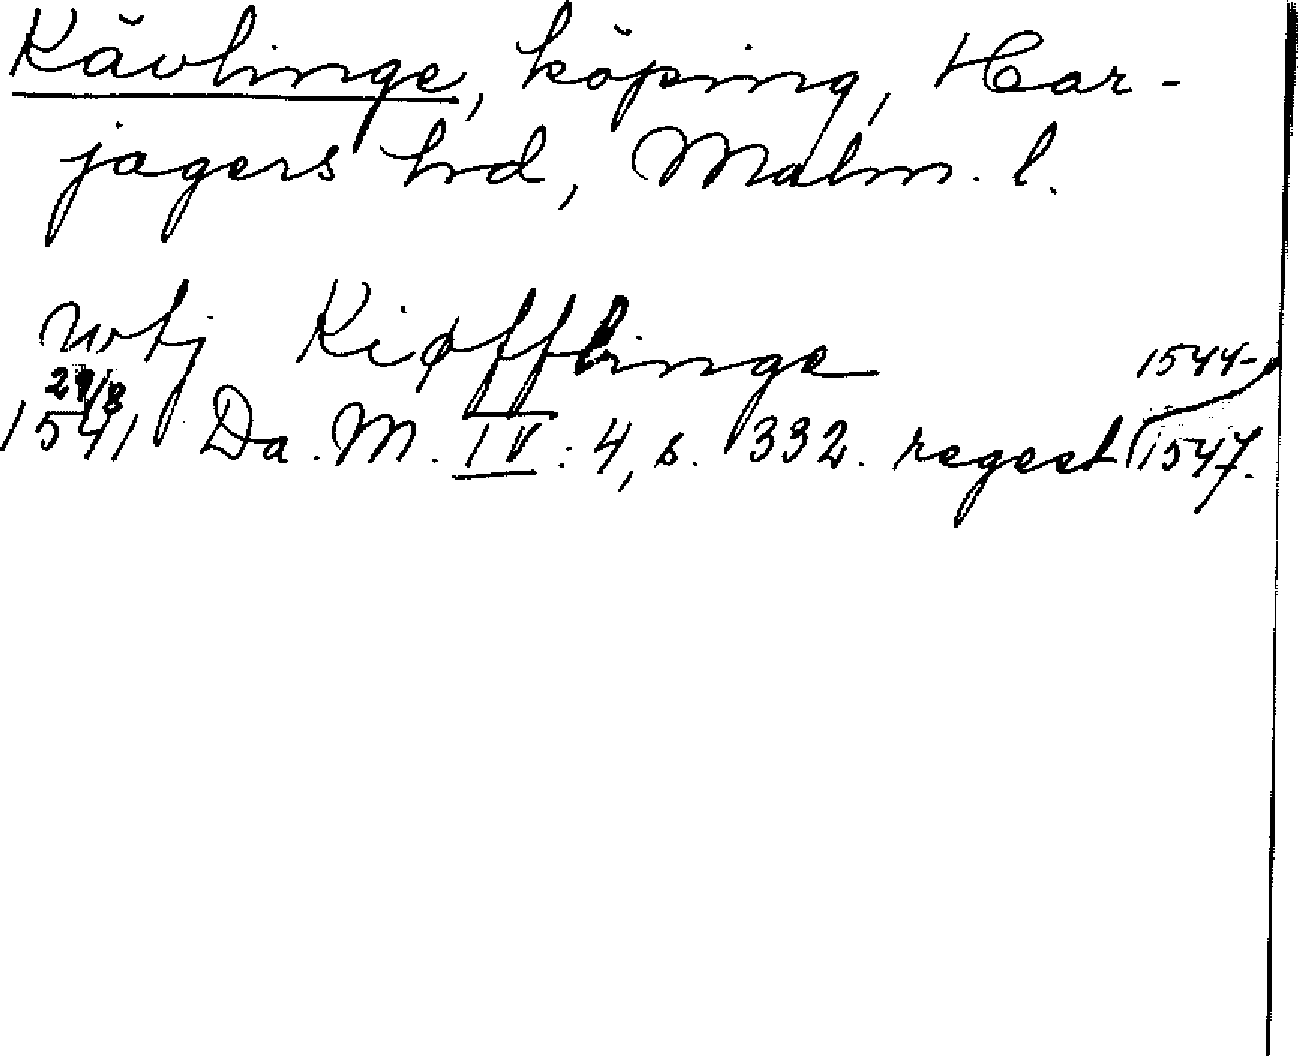 Kävlinge, köping, Har-
jagers hd, Malm. l.
vtj Kiøfflinge 1544-
29/8
1541 Da. M. IV: 4, s. 332. regest 1547.